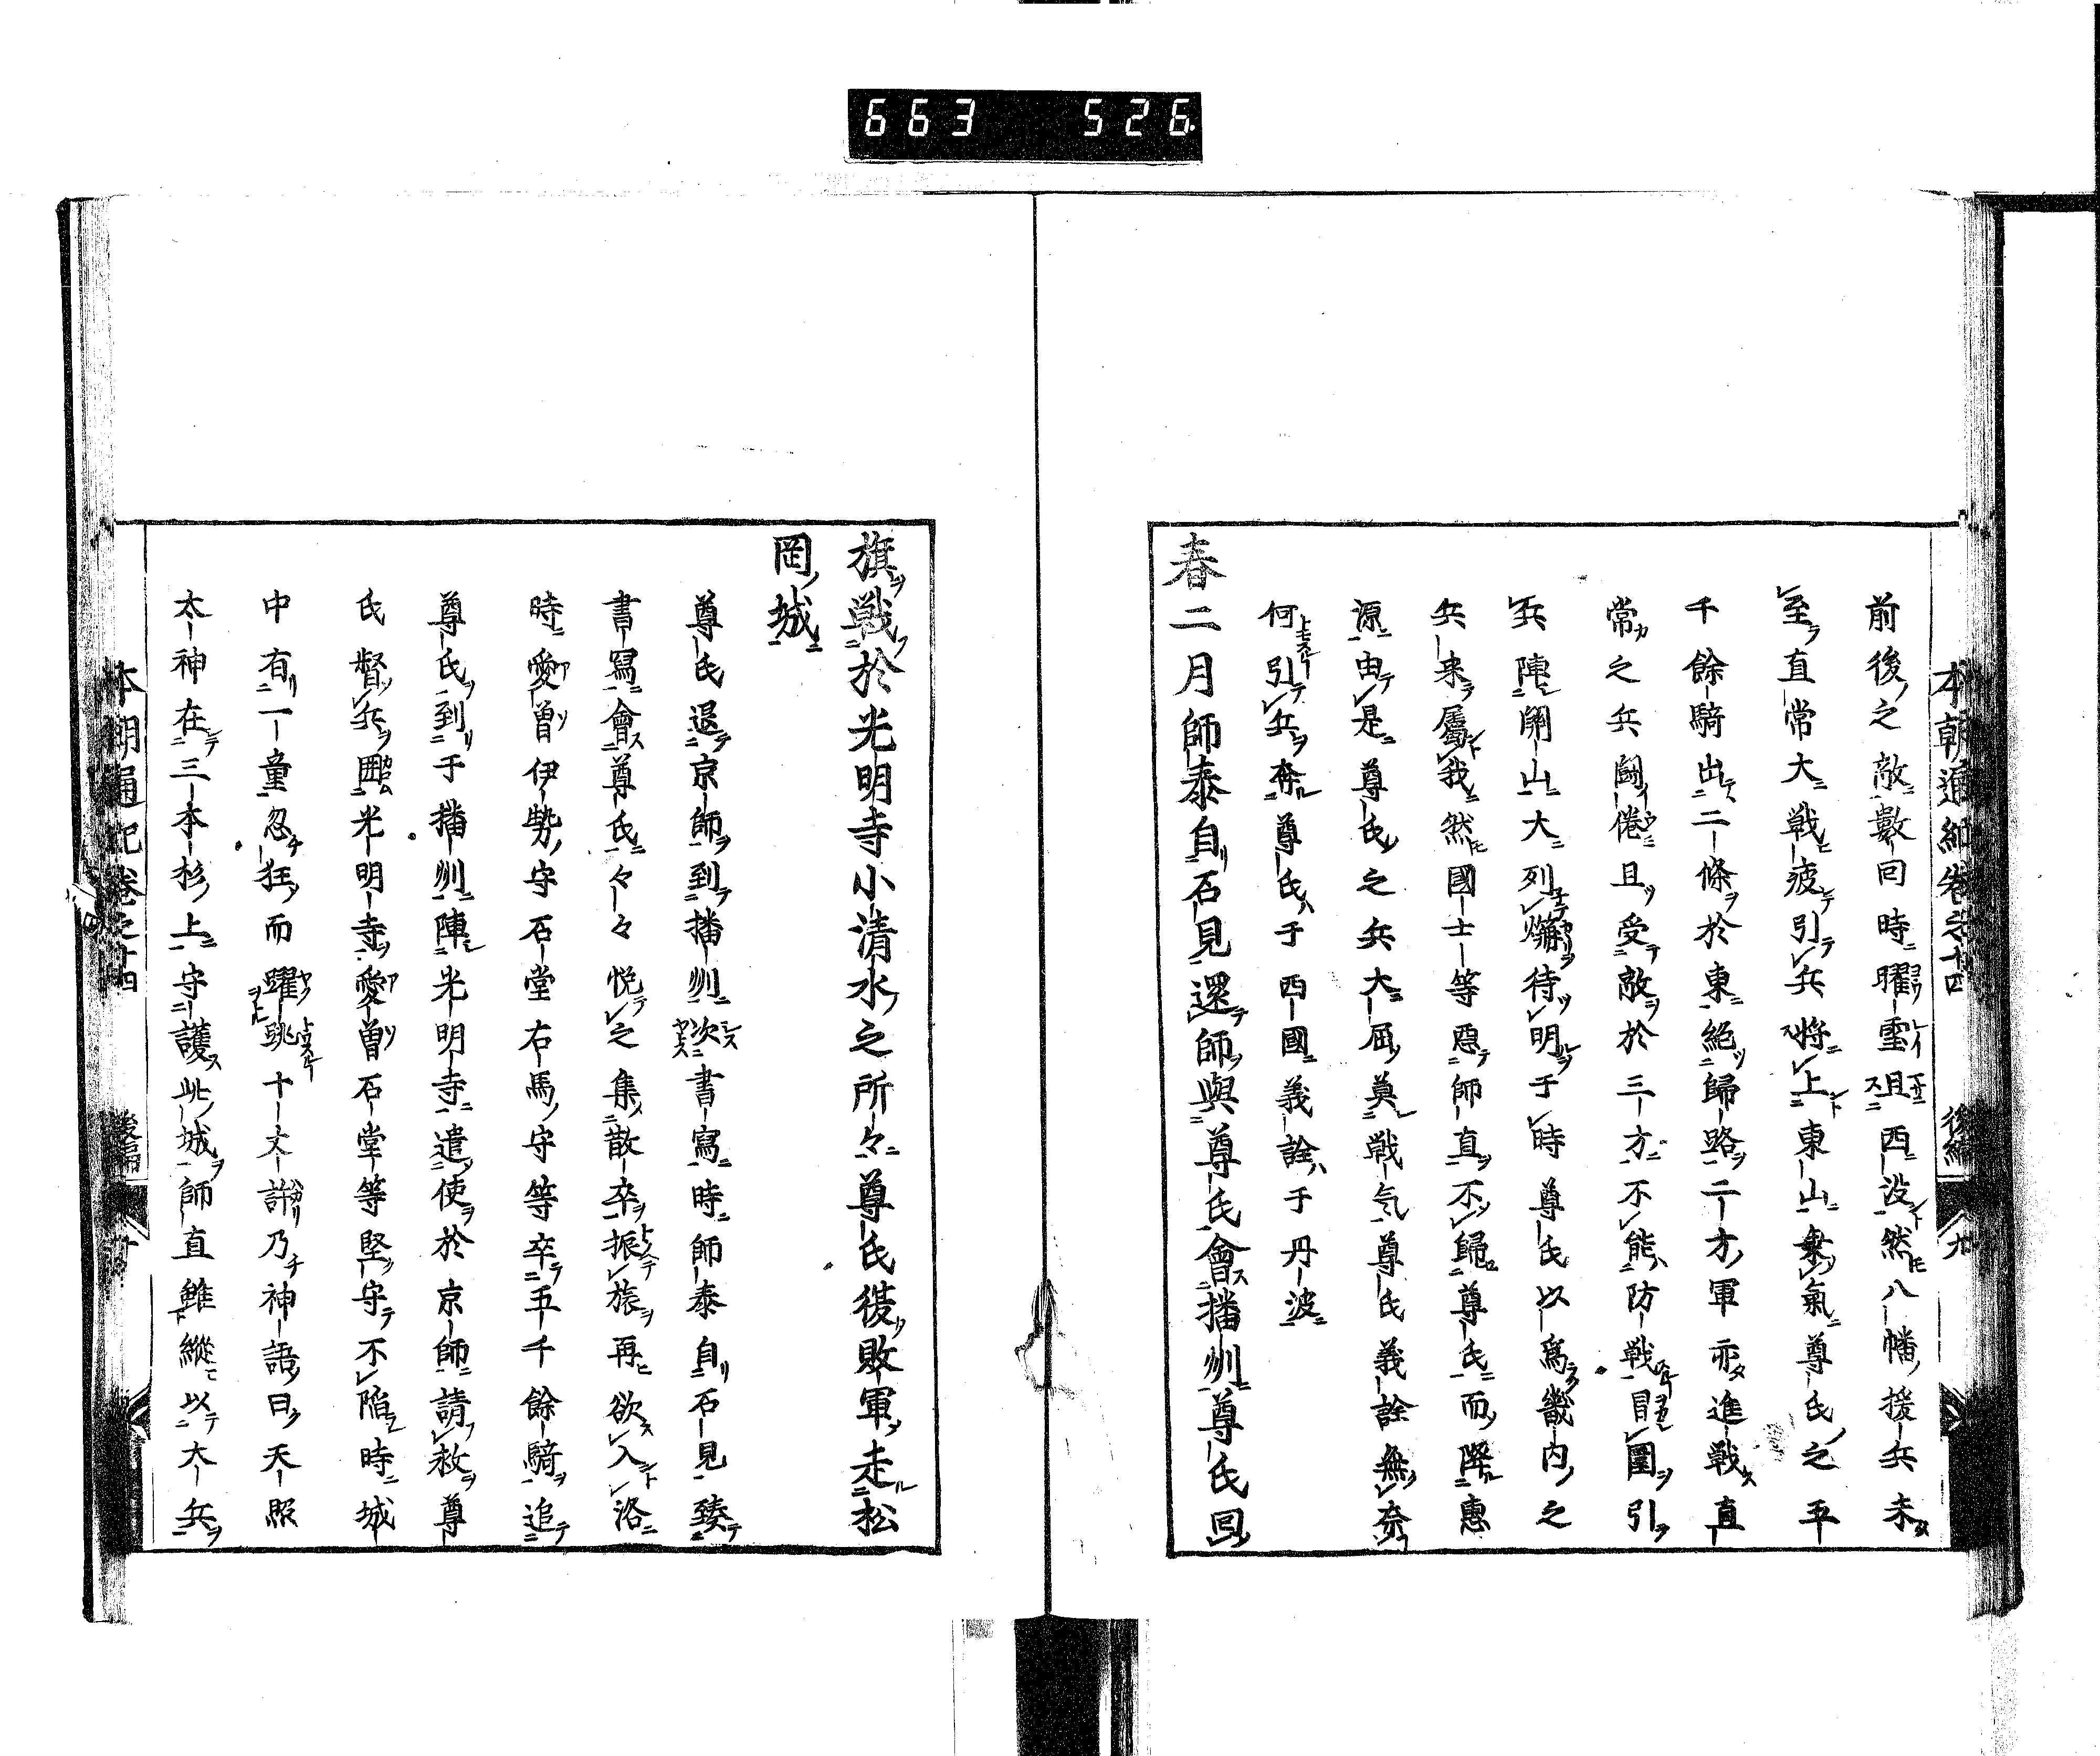 663 526.
本朝通紀卷之十四 後編 九
前後之敵數回時曜靈且西没然八幡援兵未
至直常大戦疲引兵将上東山乗氣尊氏之五
千餘騎出二條於東絶歸路二方軍亦進戦直
常之兵鬪倦且受敵於三方不能防戦冒圍引
兵陣關山大列待明于時尊氏以爲畿内之
兵来屬我然國士等惡師直不歸尊氏而降惠
源由是尊氏之兵大屈莫戦気尊氏義詮無奈
何引兵奔尊氏于西國義詮于丹波
春二月師泰自石見還師與尊氏會播州尊氏回
旗戦於光明寺小清水之所々尊氏後敗軍走松
岡城
尊氏退京師到播州次書寫時師泰自石見臻
書寫會尊氏々々悦之集散卒振旅再欲入洛
時愛曽伊勢守石堂右馬守等卒五千餘騎追
尊氏到于播州陣光明寺遣使於京師請救尊
氏督兵囲光明寺愛曽石堂等堅守不陥時城
中有一童忽狂而躍跳十丈許乃神語曰天照
太神在三本杉上守護此城師直雖縦以大兵
本朝通紀卷之十四 後編 十